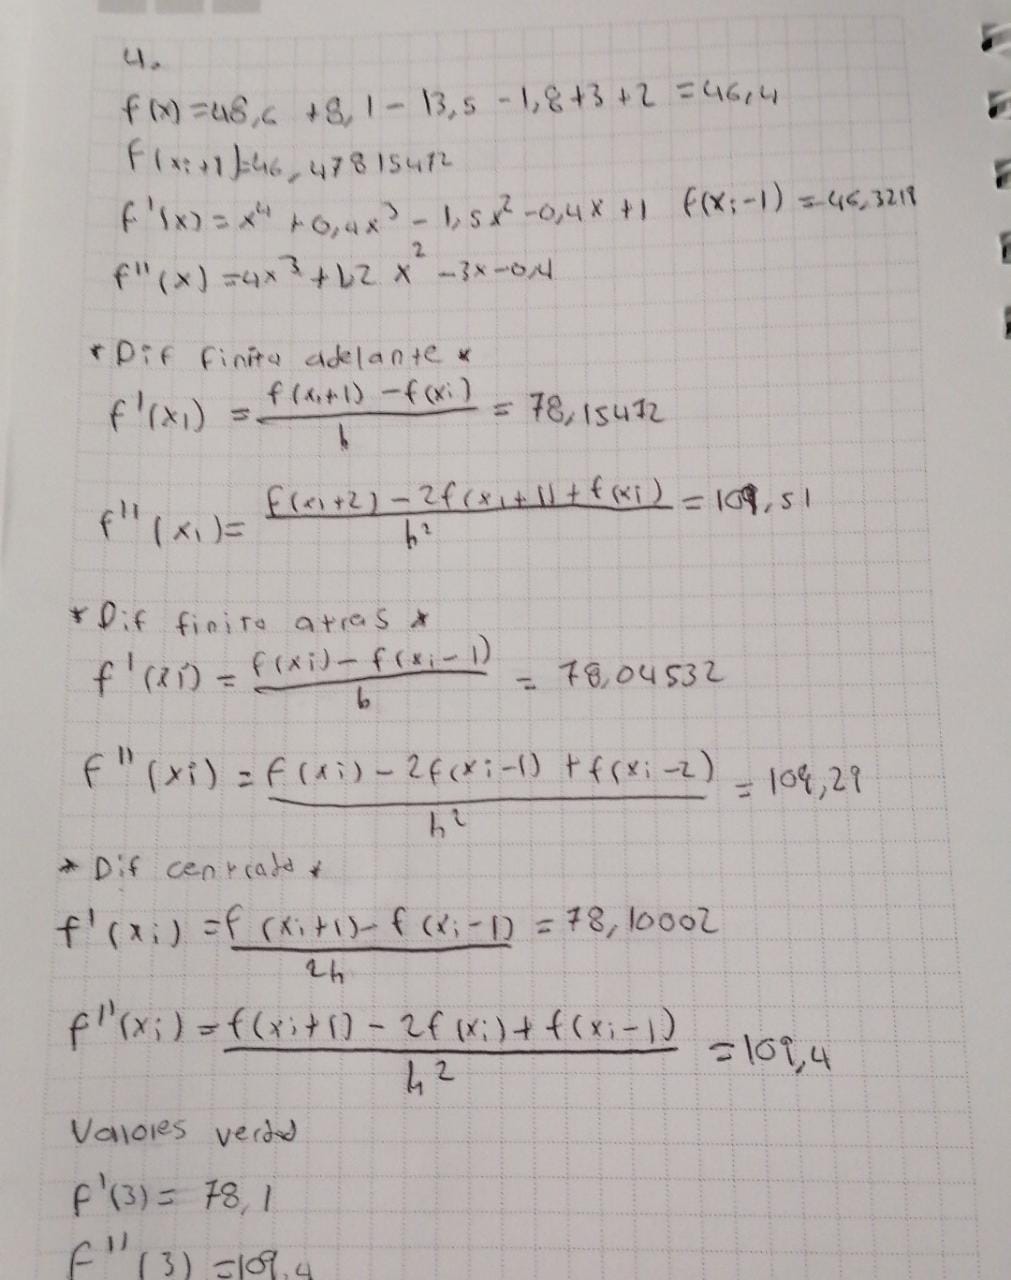 4.
f(x) = 48,6 + 8,1 - 13,5 - 1,8 + 3 + 2 = 46,4
f(xi+1) = 46,47815472
f'(x) = x⁴ + 0,4x³ - 1,5x² - 0,4x + 1 f(xi-1) = 46,3219
f''(x) = 4x³ + 1,2x² - 3x - 0,4
* Dif finita adelante *
f'(xi) = f(xi+1) - f(xi) / h = 78,15472
f''(xi) = f(xi+2) - 2f(xi+1) + f(xi) / h² = 109,51
* Dif finita atras *
f'(xi) = f(xi) - f(xi-1) / h = 78,04532
f''(xi) = f(xi) - 2f(xi-1) + f(xi-2) / h² = 109,29
* Dif centrada *
f'(xi) = f(xi+1) - f(xi-1) / 2h = 78,10002
f''(xi) = f(xi+1) - 2f(xi) + f(xi-1) / h² = 109,4
Valores verdad
f'(3) = 78,1
f''(3) = 109,4